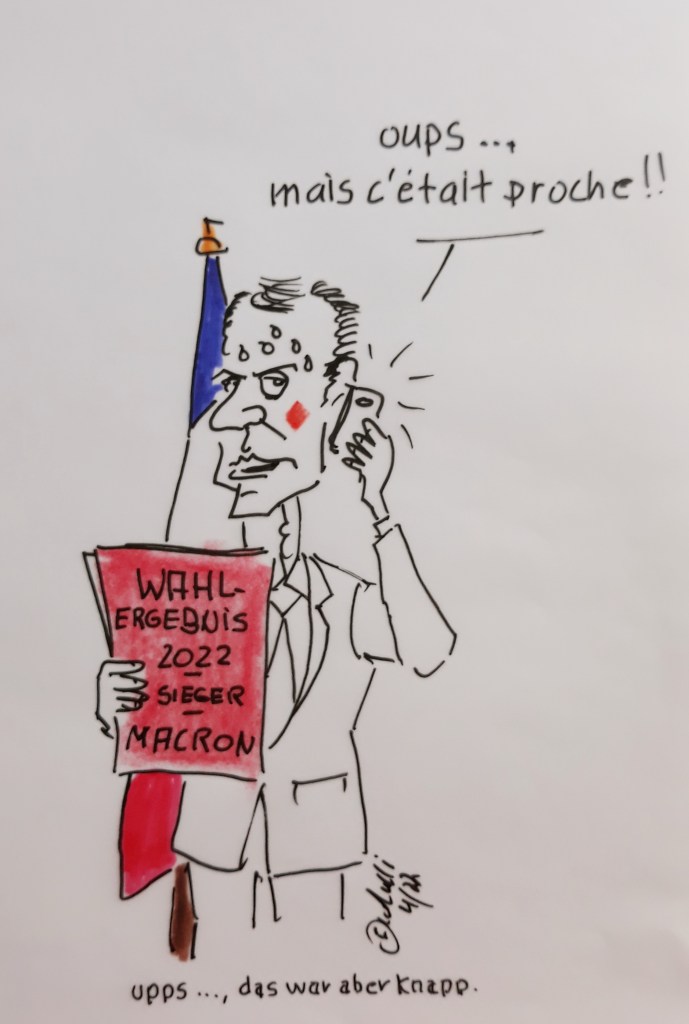 oups ...,
mais c'était proche!!
WAHL-
ERGEBNIS
2022
- SIEGER -
MACRON
4/22
upps ..., das war aber knapp.